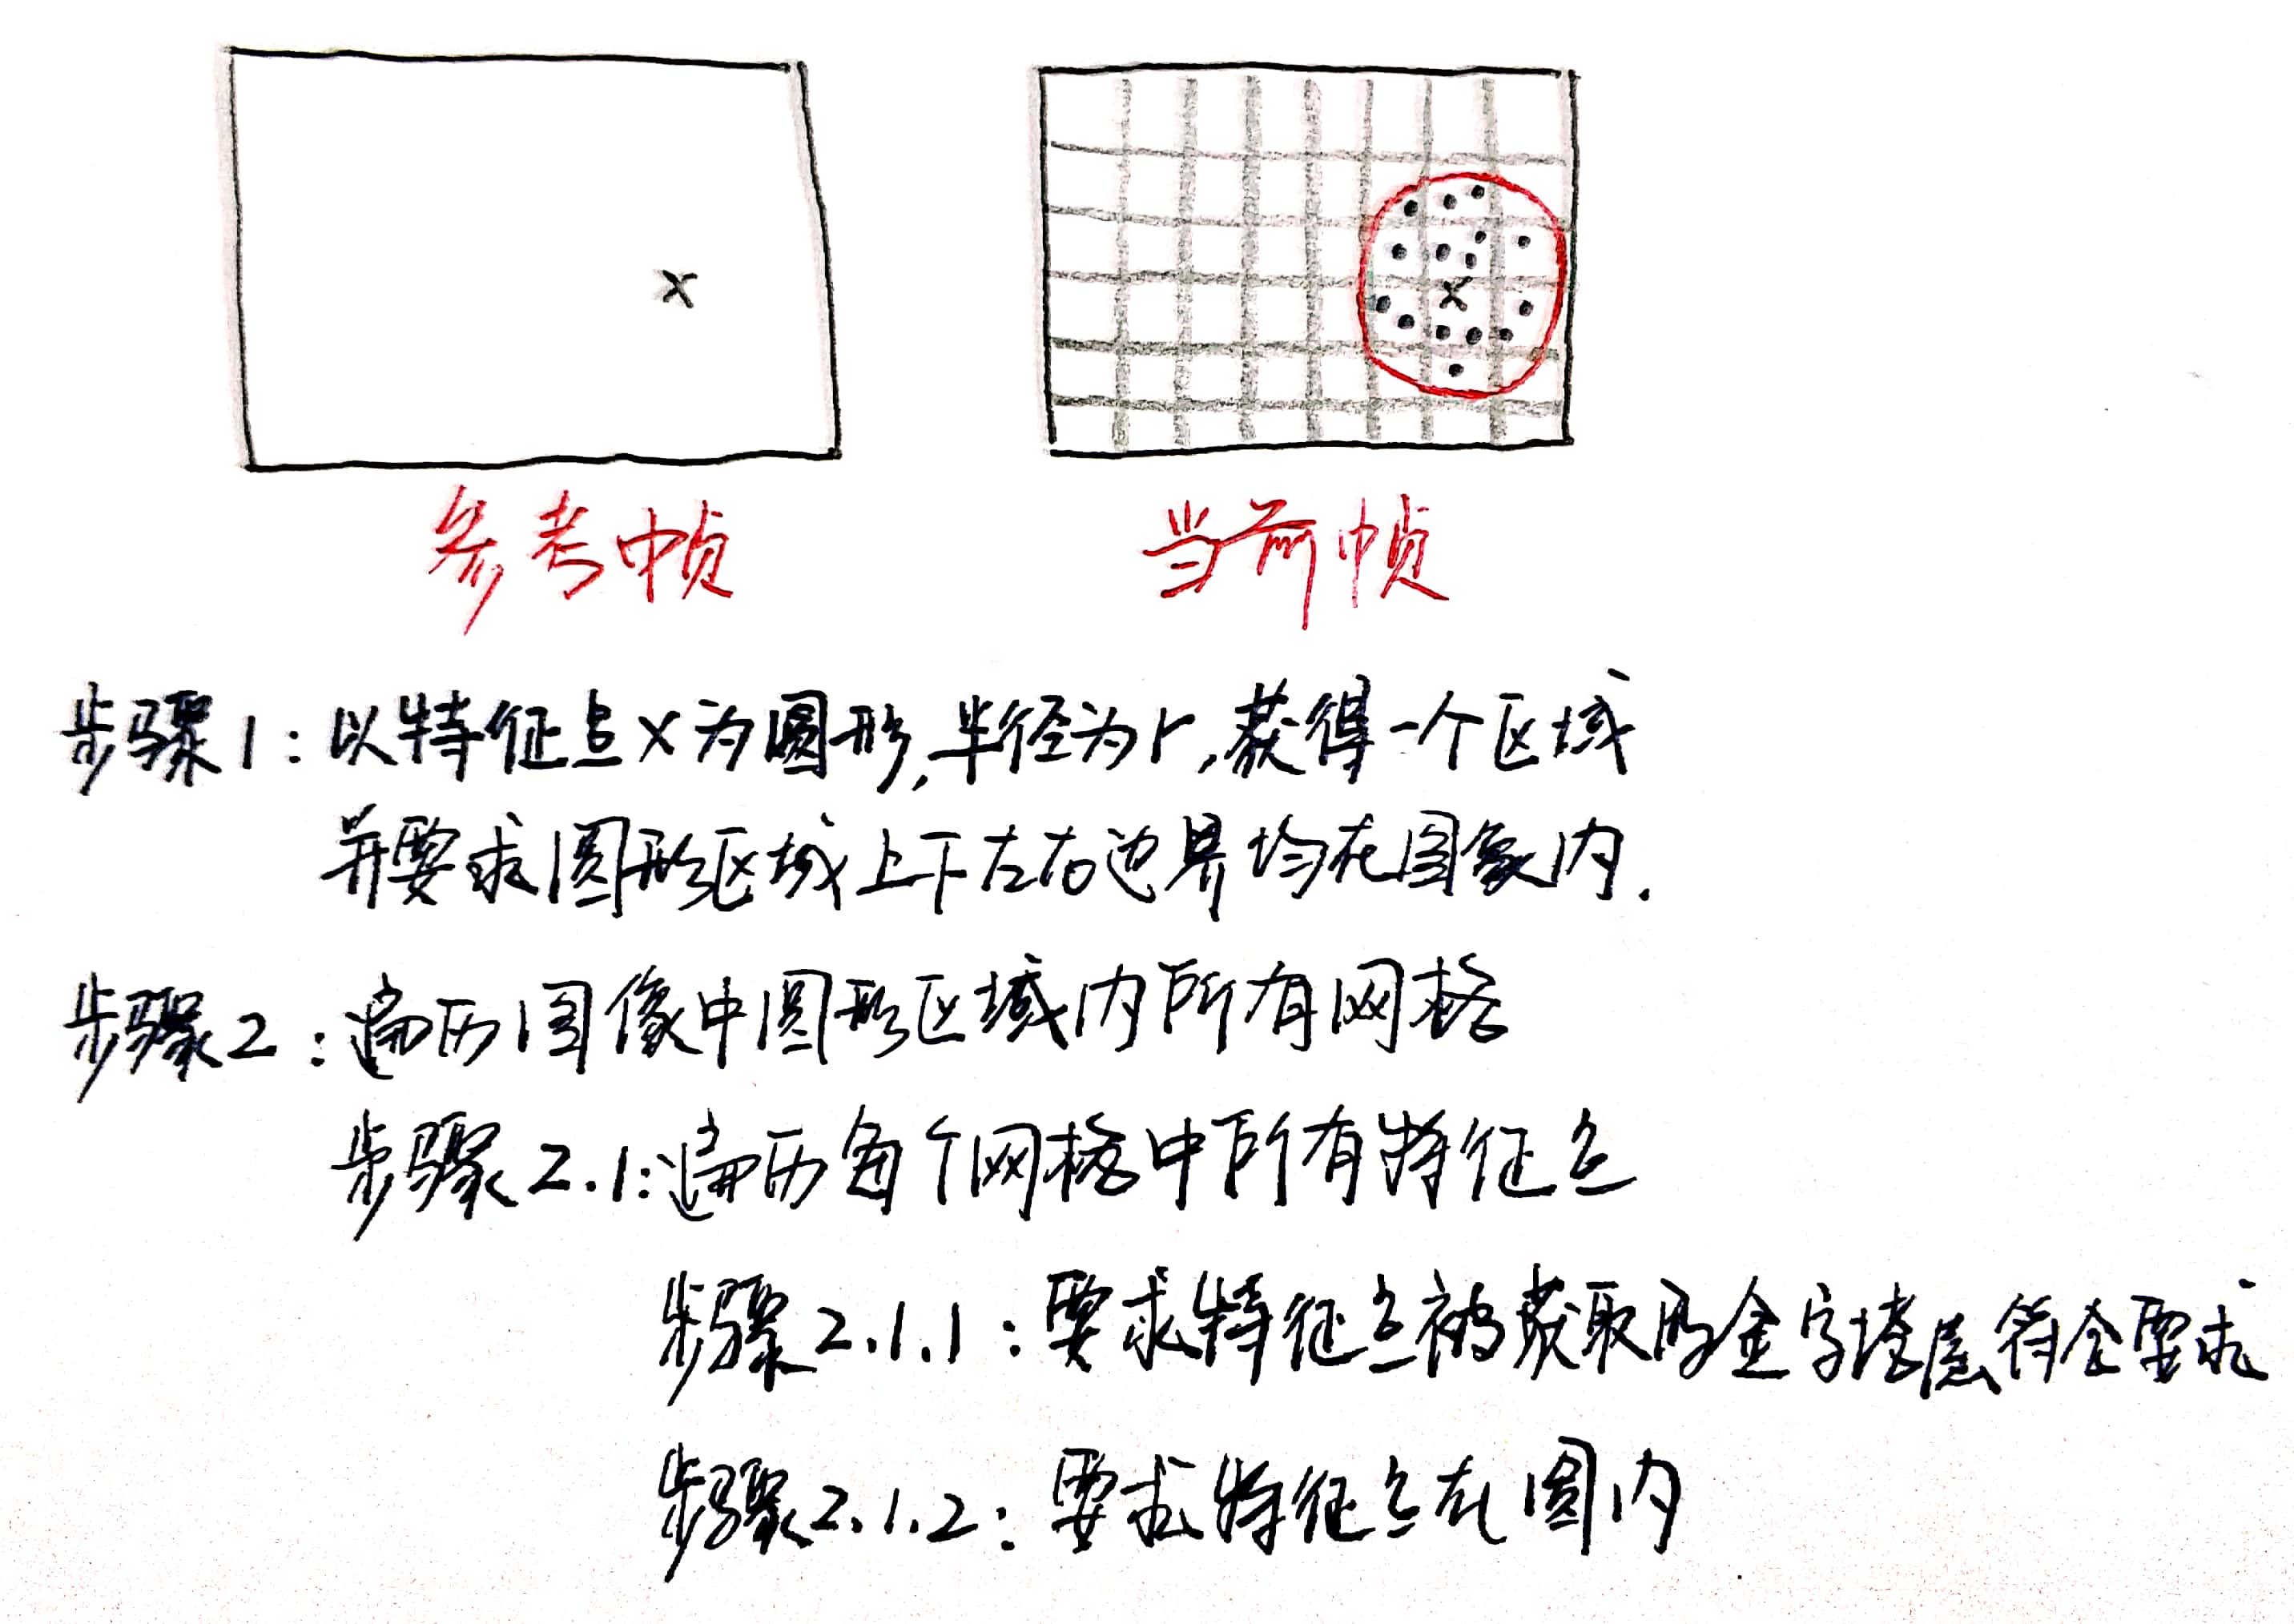 X
X
参考帧
当前帧
步骤1:以特征点X为圆形,半径为r,获得一个区域
并要求圆形区域上下左右边界均在图象内.
步骤2:遍历图像中圆形区域内所有网格
步骤2.1:遍历每个网格中所有特征点
步骤2.1.1:要求特征点被获取的金字塔层符合要求
步骤2.1.2:要求特征点在圆内